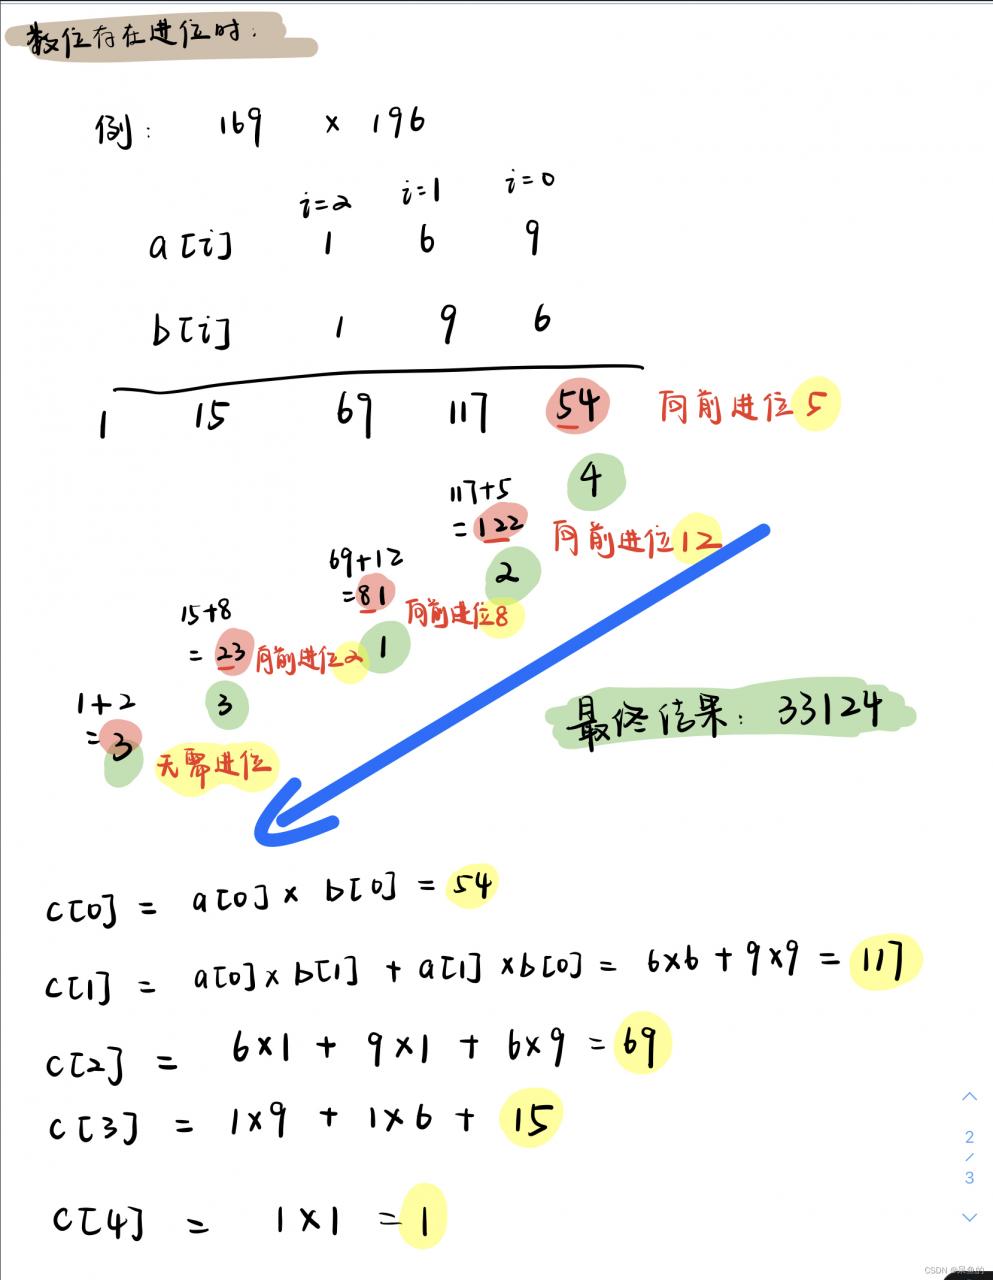 数位存在进位时:
例: 169 × 196
i=2 i=1 i=0
a[i] 1 6 9
b[i] 1 9 6
1 15 69 117 54 向前进位5
4
117+5
=122 向前进位12
2
69+12
=81 向前进位8
1
15+8
=23 向前进位2
3
1+2
=3 无需进位
最终结果: 33124
c[0] = a[0] × b[0] = 54
c[1] = a[0] × b[1] + a[1] × b[0] = 6×6 + 9×9 = 117
c[2] = 6×1 + 9×1 + 6×9 = 69
c[3] = 1×9 + 1×6 + 15
c[4] = 1×1 = 1
2
/
3
CSDN @呆鱼的